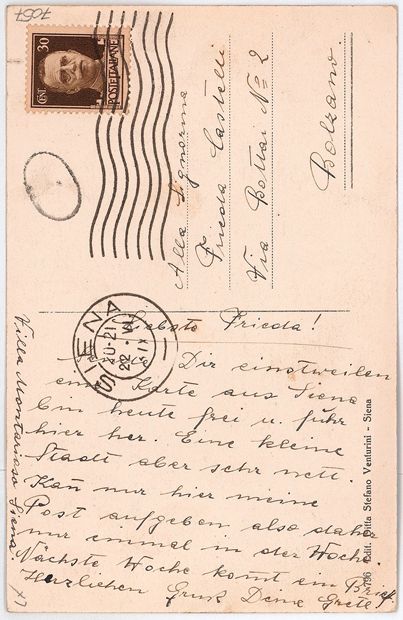 7057
30
CENT.
POSTE ITALIANE
Alla Signorina
Frieda Castelli
Via Bottai No 2
Bolzano.
SIENA
20-21
22. VI
XI
Liebste Frieda!
Dir einstweilen
eine Karte aus Siena
bin heute frei u. fuhr
hier her. Eine kleine
Stadt aber sehr nett.
Kan nur hier meine
Post aufgeben also daher
nur einmal in der Woche.
Nächste Woche komt ein Brief.
Herzlichen Gruss Deine Grete
Villa Montarioso Siena.
796 Edit. Ditta Stefano Venturini - Siena